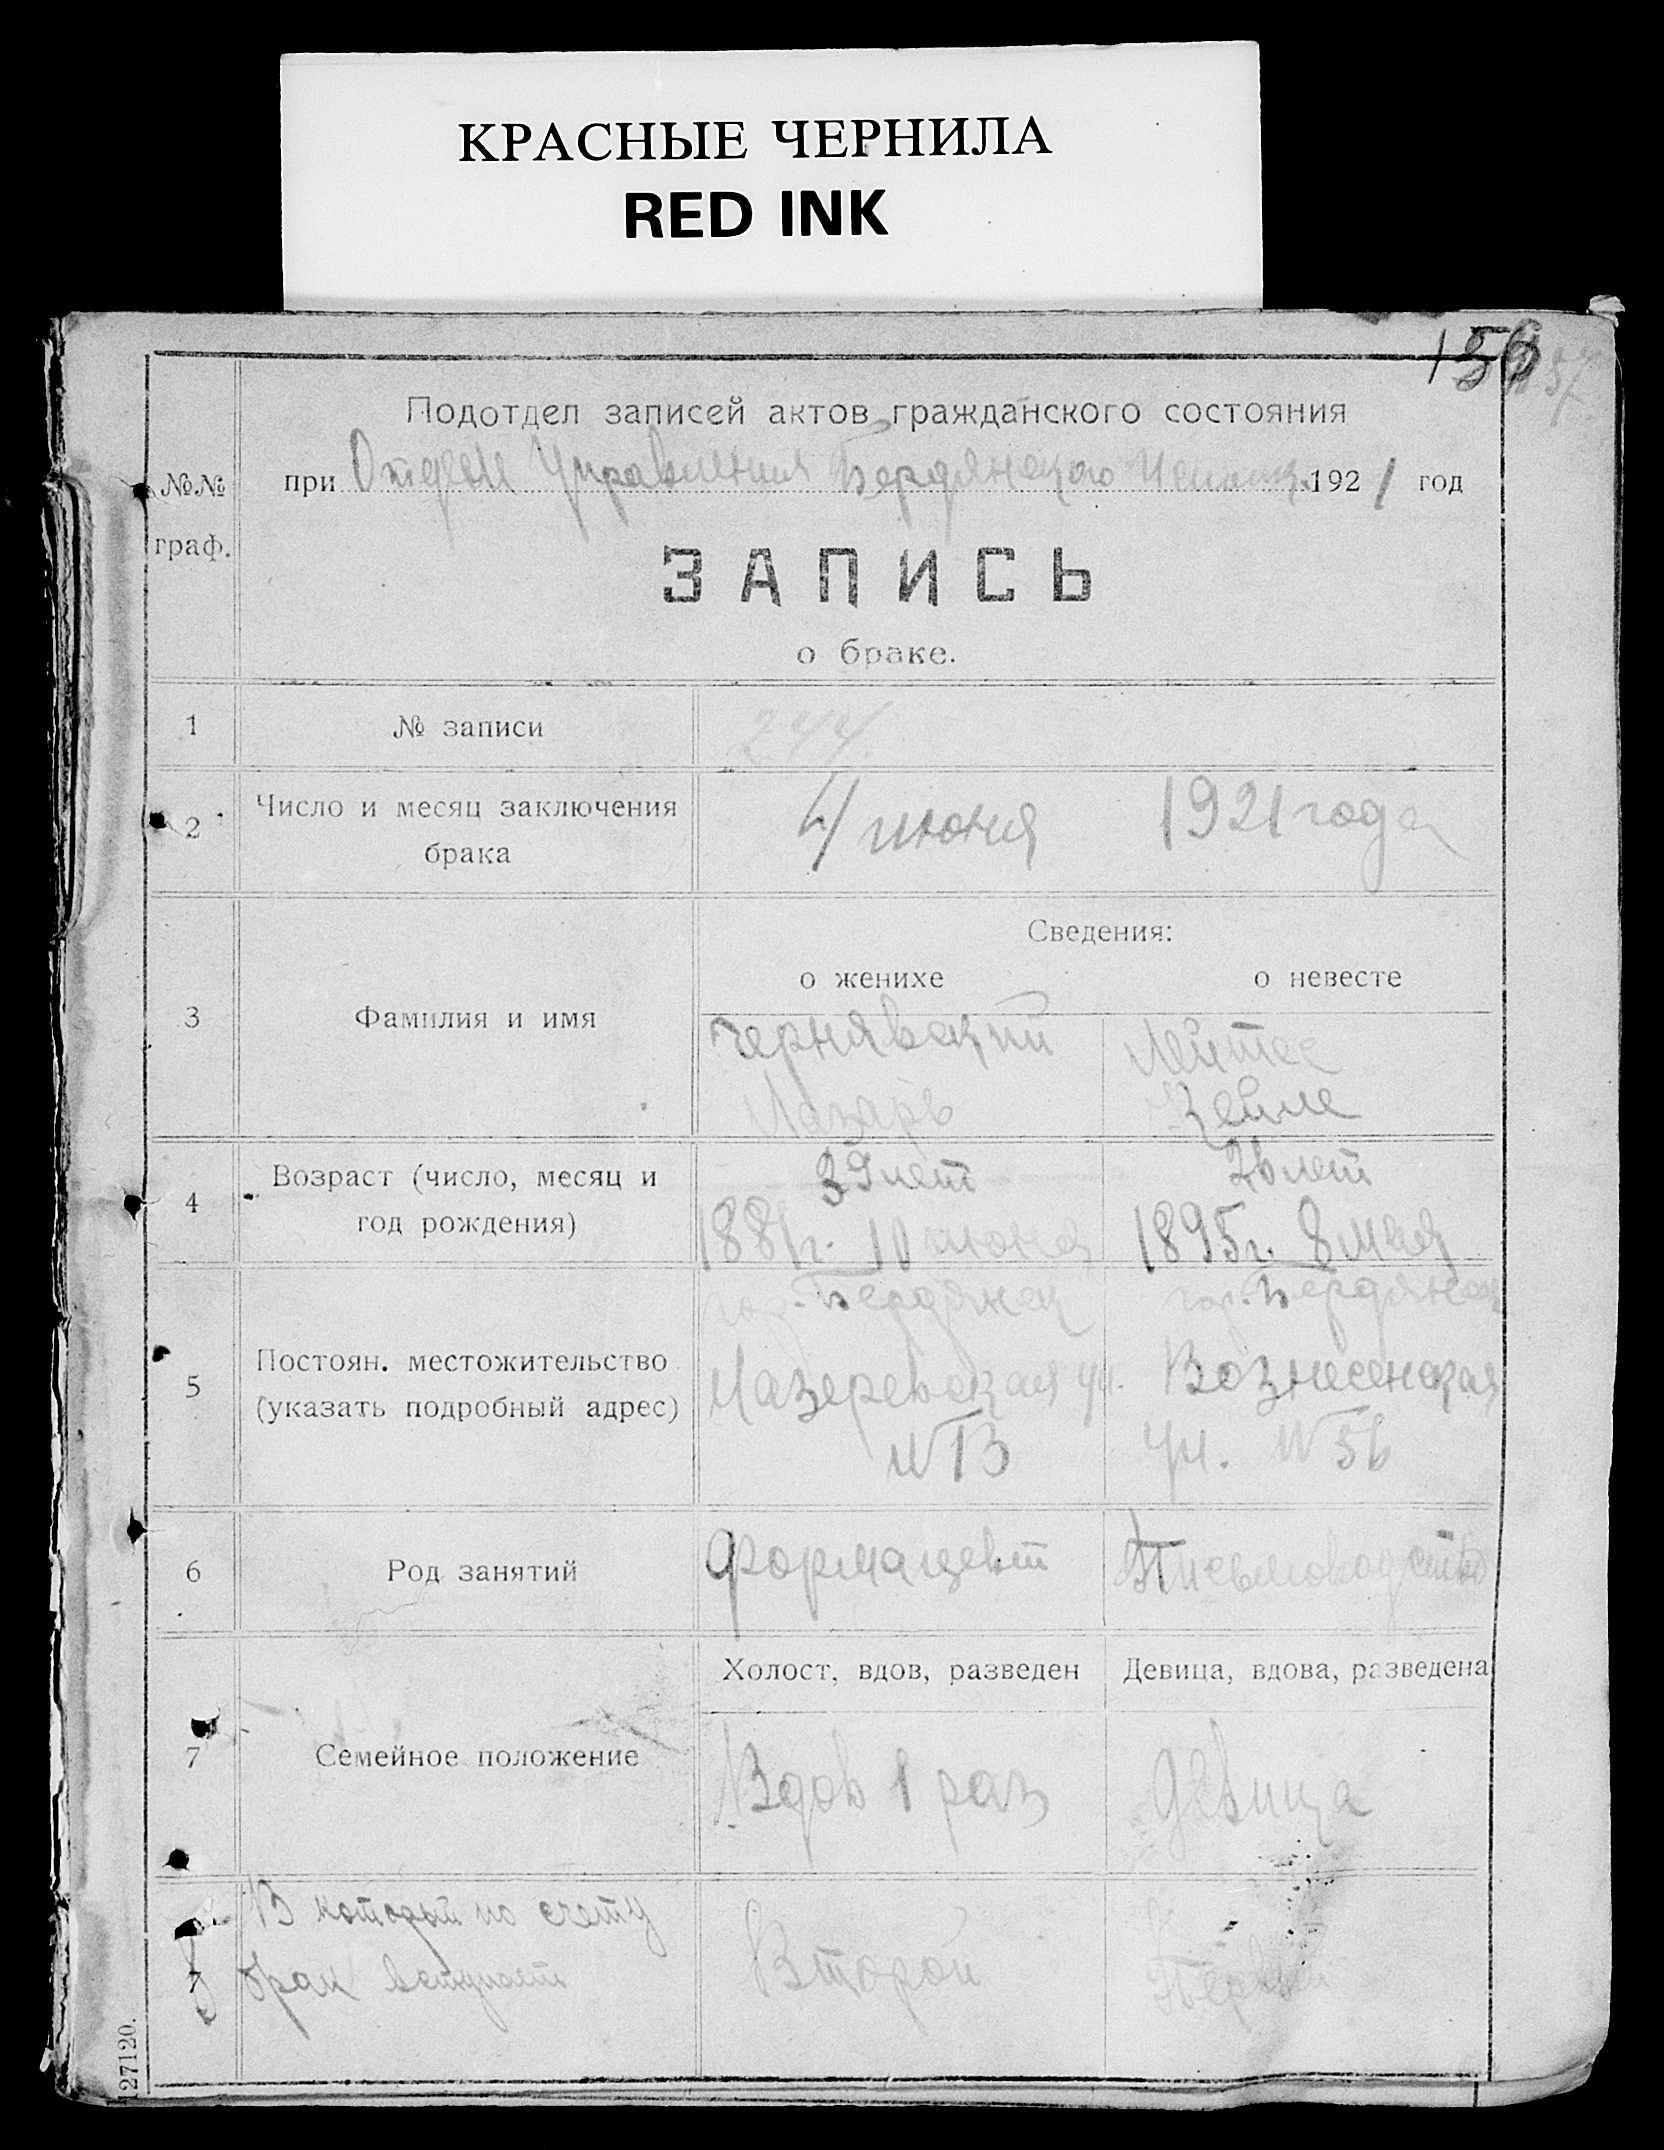 КРАСНЫЕ ЧЕРНИЛА
RED INK
156
Подотдел записей актов гражданского состояния
№№ граф.
при Отделе Управления Бердянского Исполк. 1921 год
ЗАПИСЬ
о браке.
1 № записи 244
2 Число и месяц заключения брака
4 июня 1921 года
Сведения:
о женихе о невесте
3 Фамилия и имя
Чернявский Лейтес
Лазарь Зейле
4 Возраст (число, месяц и год рождения)
39 лет 26 лет
1881г. 10 июня 1895г. 8 мая
5 Постоян. местожительство (указать подробный адрес)
гор. Бердянск гор. Бердянск
Лазеревская ул. Вознесенская
№ 13 ул. № 36
6 Род занятий
Формацевт Письмоводство
Холост, вдов, разведен Девица, вдова, разведена
7 Семейное положение
Вдов 1 раз девица
В которой по счету
брак вступает
Второй Первый
127120.